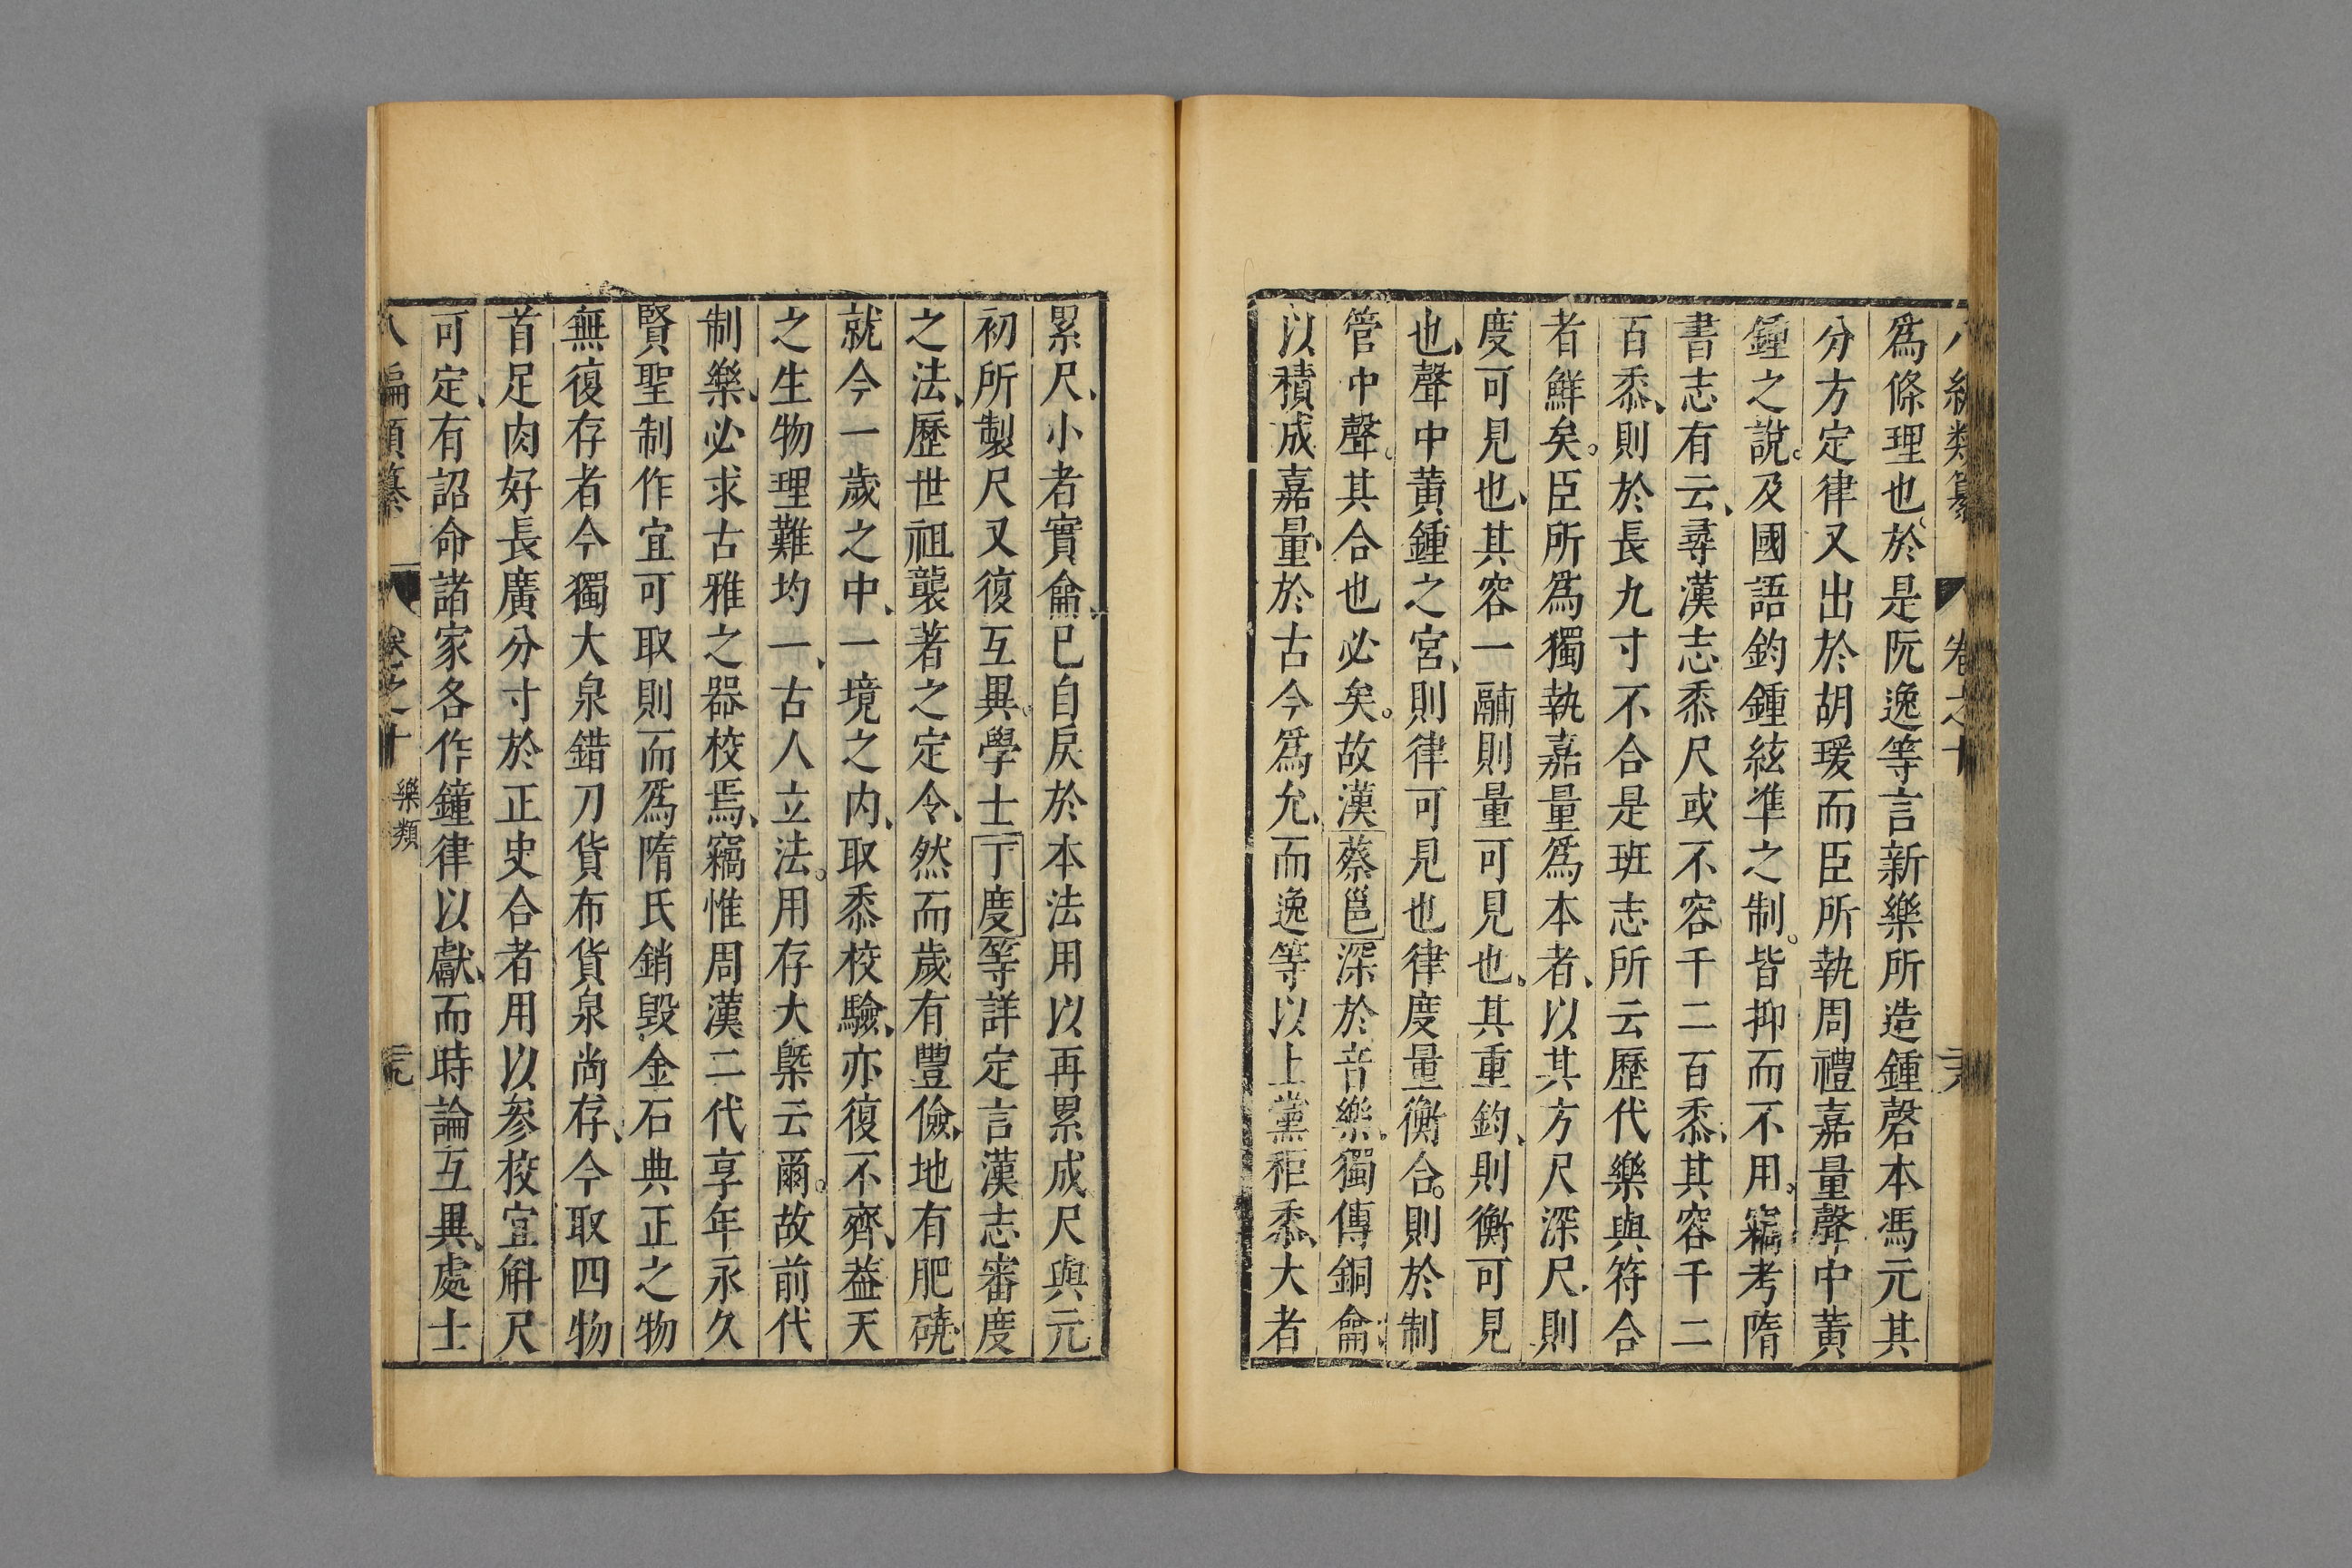 爲條理也、於是阮逸等言新樂所造鍾磬本馮元其
分方定律又出於胡瑗而臣所執周禮嘉量聲中黃
鍾之說。及國語鈞鍾絃準之制。皆抑而不用。竊考隋
書志有云、尋漢志黍尺或不容千二百黍、其容千二
百黍、則於長九寸不合是班志所云歷代樂與符合
者鮮矣。臣所爲獨執嘉量爲本者、以其方尺深尺、則
度可見也、其容一鬴則量可見也、其重鈞、則衡可見
也、聲中黃鍾之宮、則律可見也律度量衡合。則於制
管中聲。其合也必矣。故漢蔡邕深於音樂。獨傳銅龠、
以積成嘉量、於古今爲允、而逸等以上黨秬黍、大者
累尺、小者實龠、已自戾於本法用以再累成尺與元
初所製尺又復互異。學士丁度等詳定言漢志審度
之法、歷世祖襲著之定令、然而歲有豐儉、地有肥磽、
就今一歲之中、一境之內、取黍校驗、亦復不齊、葢天
之生物理難均一、古人立法。用存大槩云爾。故前代
制樂、必求古雅之器校焉、竊惟周漢二代享年永久
賢聖制作宜可取則而爲隋氏銷毀金石典正之物
無復存者今獨大泉錯刀貨布貨泉尚存、今取四物
首足肉好長廣分寸於正史合者用以參挍宜斛尺
可定、有詔命諸家各作鐘律以獻、而時論互異、處士
八編類纂 卷之十 樂類 二九